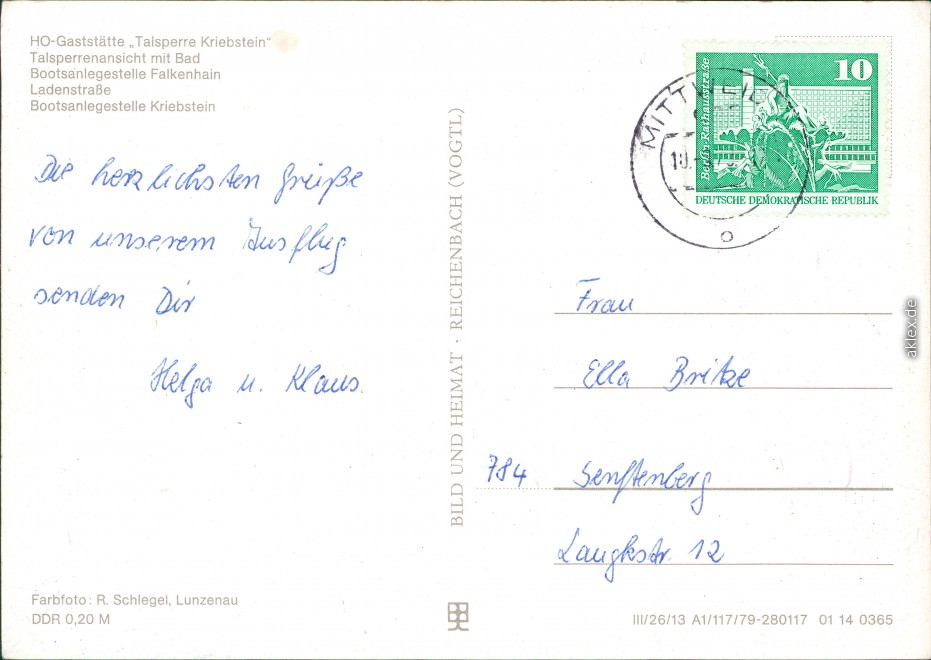 HO-Gaststätte „Talsperre Kriebstein"
Talsperrenansicht mit Bad
Bootsanlegestelle Falkenhain
Ladenstraße
Bootsanlegestelle Kriebstein
Die herzlichsten Grüße
von unserem Ausflug
senden Dir
Helga u. Klaus.
Farbfoto: R. Schlegel, Lunzenau
DDR 0,20 M
BILD UND HEIMAT · REICHENBACH (VOGTL)
10
Berlin, Rathausstraße
DEUTSCHE DEMOKRATISCHE REPUBLIK
Frau
Ella Britze
784 Senftenberg
Langkstr. 12
III/26/13 A1/117/79-280117 01 14 0365
aklex.de